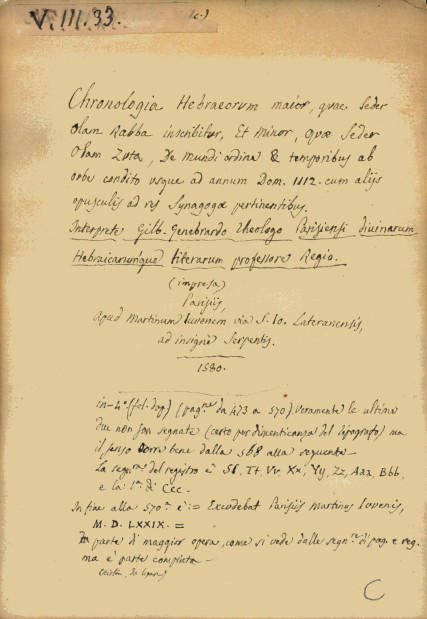 V. III. 33.
(c.)
Chronologia Hebraeorum maior, quae Seder
Olam Rabba inscribitur, Et minor, quae Seder
Olam Zuta, De mundi ordine & temporibus ab
orbe condito usque ad annum Dom. 1112. cum alijs
opusculis ad res Synagogae pertinentibus.
Interprete Gilb. Genebrardo theologo Parisiensi divinarum
Hebraicarumque literarum professore Regio.
(impresa)
Parisiis,
apud Martinum Iuvenem via S. Io. Lateranensis,
ad insigne Serpentis.
1580.
in-4° (fol. dop) (pagne da 473 a 570) veramente le ultime
due non son segnate (certo per dimenticanza del tipografo) ma
il senso corre bene dalla 568 alla seguente.
La segne del registro è Sſ, Tt, Vv, Xx, Yy, Zz, Aaa, Bbb,
e la 1a di Ccc.
In fine alla 570a è := Excudebat Parisiis Martinus Iuvenis,
M. D. LXXIX. =
Fa parte di maggior opera, come si vede dalle segne di pag. e reg.
ma è parte completa
C